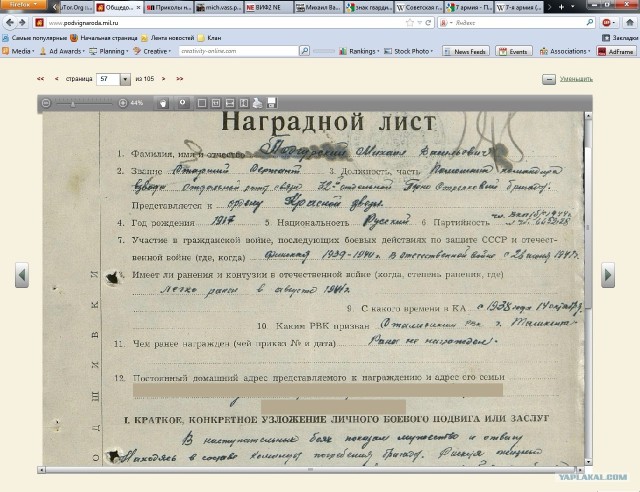 Firefox
uTor.Org
Общедо...
Приколы н...
mich.vass.p...
ВИФ2 NE
Михаил Ва...
знак гварди...
Советская г...
7 армия - П...
7-я армия (...
www.podvignaroda.mil.ru
Яндекс
Самые популярные Начальная страница Лента новостей Клан
Закладки
Media Advertising Planning Creative creativity-online.com Rankings Stock Photo News Feeds Events Associations AdFrame
<< < страница 57 из 105 > >> Уменьшить
44%
Наградной лист
1. Фамилия, имя и отчество Михаил Васильевич
2. Звание Старший Сержант 3. Должность, часть Помощник командира
взвода отдельной роты связи 32й отдельной бригады.
Представляется к ордену Красной звезды.
4. Год рождения 1917 5. Национальность Русский 6 Партийность
7. Участие в гражданской войне, последующих боевых действиях по защите СССР и отечест-
венной войне (где, когда) финская 1939-1940. в отечественной войне с 1941г.
8. Имеет ли ранения и контузии в отечественной войне (когда, степень ранения, где)
легко ранен в августе 1941г.
9. С какого времени в КА с 1938 года
10. Каким РВК призван Сталинским РВК г. Ташкента
11. Чем ранее награжден (чей приказ № и дата) Ранее не награжден.
12. Постоянный домашний адрес представляемого к награждению и адрес его семьи
I. КРАТКОЕ, КОНКРЕТНОЕ УЗЛОЖЕНИЕ ЛИЧНОГО БОЕВОГО ПОДВИГА ИЛИ ЗАСЛУГ
В наступательных боях показал мужество и отвагу
Находясь в составе бригады.
YAPLAKAL.COM